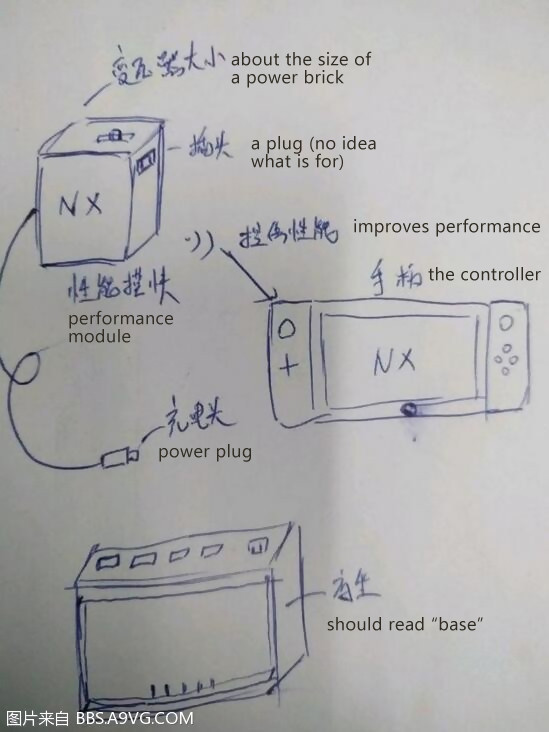 变压器大小
about the size of
a power brick
插头
a plug (no idea
what is for)
NX
提高性能
improves performance
性能摸快
performance
module
手柄
the controller
NX
充电头
power plug
should read “base”
图片来自 BBS.A9VG.COM